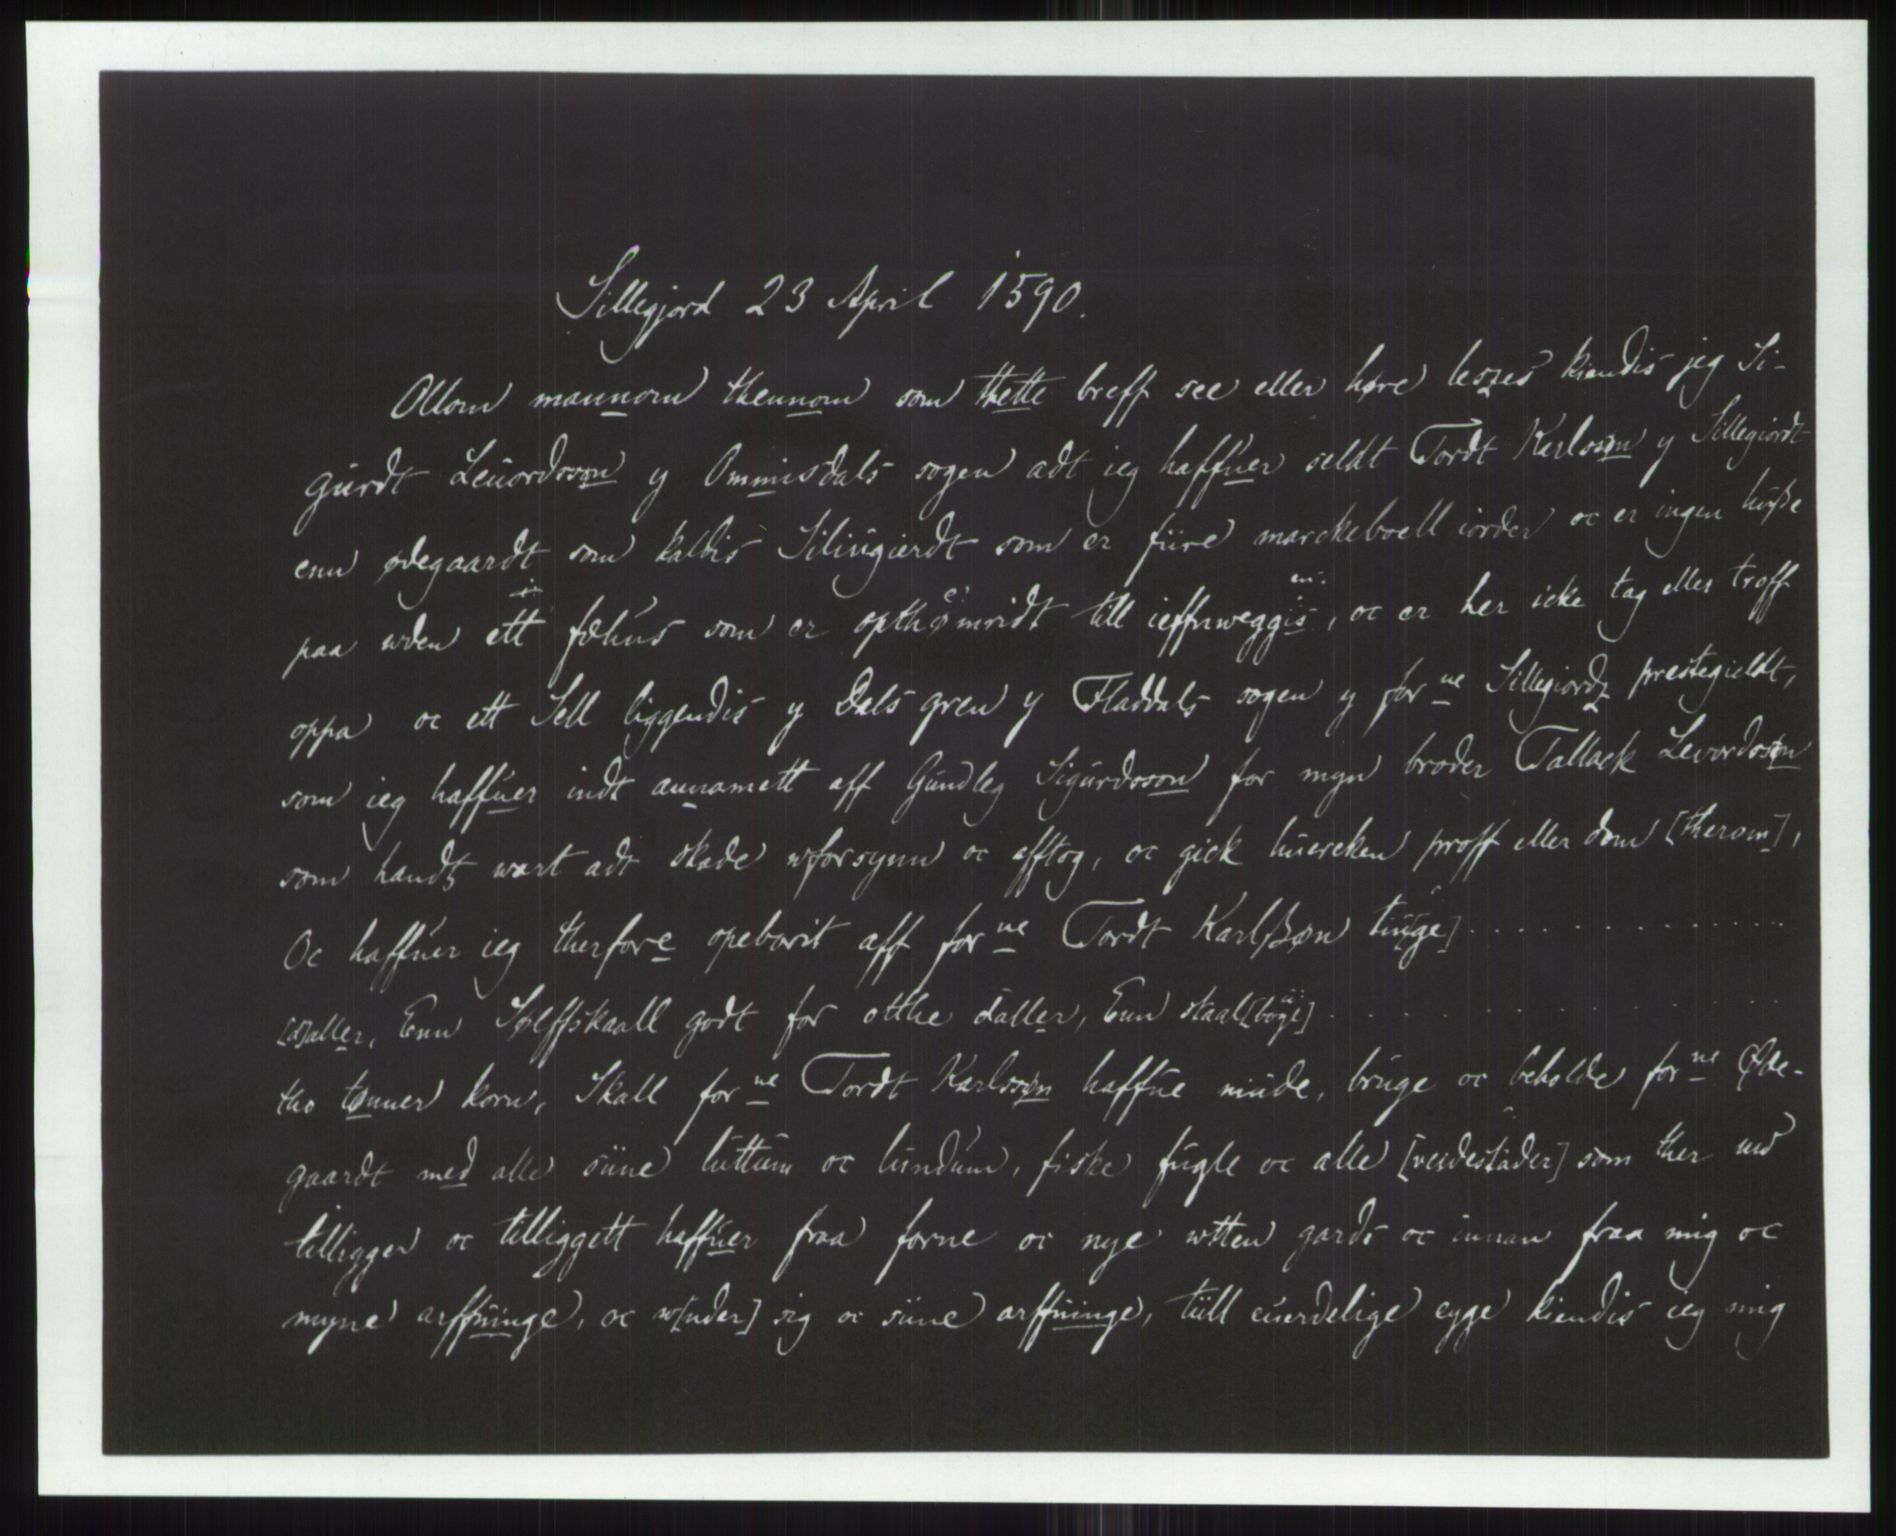 Sillegjord 23 April 1590.
Ollom mannom thennom som thette breff see eller høre leszes kiendis jeg Si-
gurdt Leuordsson y Ommisdals sogen adt ieg haffuer seldt Tordt Karlsøn y Sillegiordt
enn ødegaardt som kaldis Silingierdt som er fiire marckeboell iorder oc er ingen huße
paa uden ett fæhus som er opthømridt till ieffnweggis, oc er her icke tag eller troff
oppa oc ett Sell liggendis y Dals gren y Fladdals sogen y forne Sillegiordz prestegieldt,
som ieg haffuer indt annamett aff Gundleg Sigurdsson for myn broder Tallack Levordsøn
som handz wart adt skade wforsynn oc afftog, oc gick huercken proff eller dom [therom],
Oc haffuer ieg therfore opeborit aff forne Tordt Karlßøn tiuge] . . . . . . . . . . . . . .
[d]aller, Enn Sølffskaall godt for otthe daller, Enn skaal[bøge] . . . . . . . . . . . . . .
tho tønner korn, Skall forne Tordt Karlssøn haffue niude, bruge oc beholde forne Øde-
gaardt med alle siine luttum oc lundum, fiske fugle oc alle [veidestader] som ther nu
tilligger oc tilliggett haffuer fraa forne oc nye utten gards oc innan fraa mig oc
myne arffuinge, oc w[nder] sig oc siine arffuinge, till euerdelige eyge kiendis ieg mig